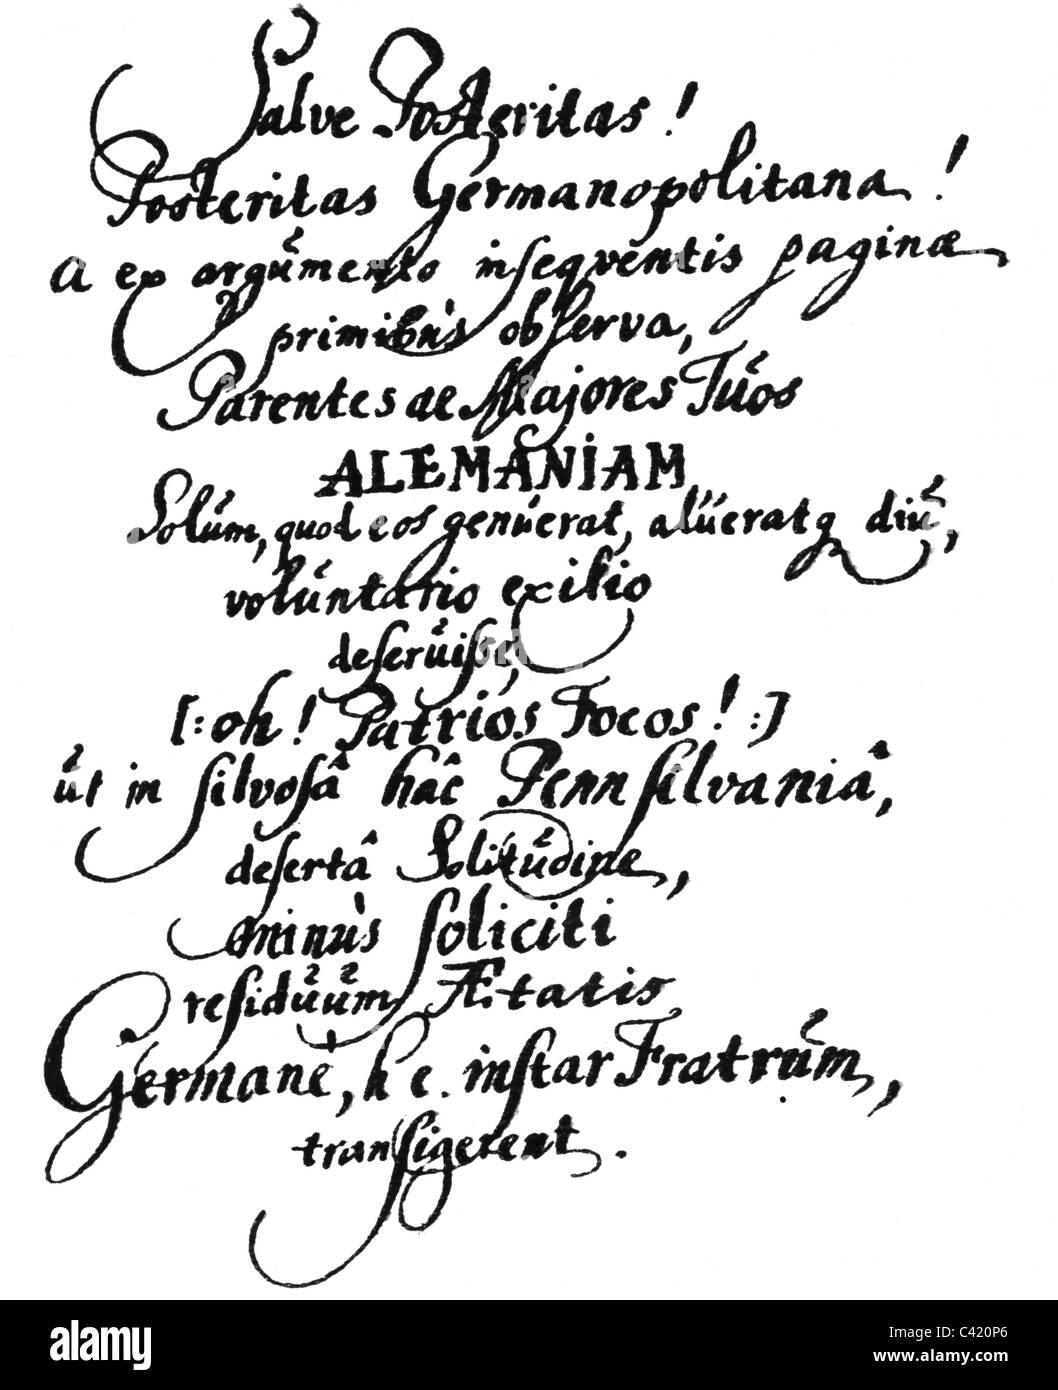 Salve Posteritas!
Posteritas Germanopolitana!
a ex argúmento inseqventis paginæ
primibùs observa,
Parentes ac Majores Túos
ALEMANIAM
Solúm, quod eos genúerat, alúeratq diú,
volúntario exilio
deserúisse,
[:oh! Patrios Focos!:]
út in silvosâ hâc Pennsilvaniâ,
desertâ Solitúdine,
minùs soliciti
residúúm Ætatis
Germanè, h e. instar Fratrúm,
transigerent.
alamy
Image ID: C420P6
www.alamy.com